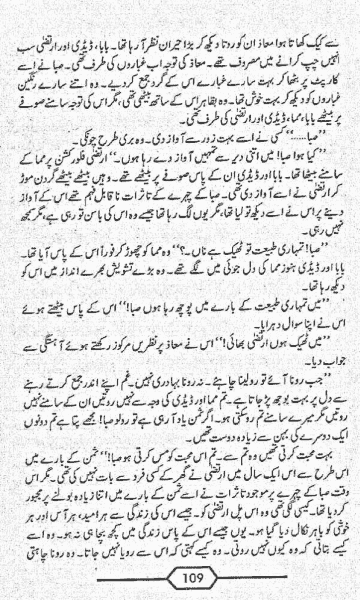 سے کیک کھاتا ہوا معاذ ان کو روتا دیکھ کر بڑا حیران نظر آ رہا تھا۔ بابا، ڈیڈی اور ارتضیٰ سب
انہیں چپ کرانے میں مصروف تھے۔ معاذ کی توجہ اب غباروں کی طرف تھی۔ صبا نے اسے
کارپٹ پر بٹھا کر بہت سارے غبارے اس کے گرد جمع کر دیے۔ وہ اتنے سارے رنگین
غباروں کو دیکھ کر بہت خوش تھا۔ وہ بظاہر اس کے ساتھ بیٹھی تھی، مگر اس کی توجہ سامنے صوفے
پر بیٹھے بابا، مما، ڈیڈی اور ارتضیٰ کی طرف تھی۔
”صبا......“ کسی نے اسے بہت زور سے آواز دی۔ وہ بری طرح چونکی۔
”کیا ہوا صبا! میں اتنی دیر سے تمہیں آواز دے رہا ہوں۔“ ارتضیٰ فلور کشن پر مما کے
سامنے بیٹھا تھا۔ بابا اور ڈیڈی ان کے پاس صوفے پر بیٹھے تھے۔ وہیں بیٹھے بیٹھے گردن موڑ
کر ارتضیٰ نے اسے آواز دی تھی۔ صبا کے چہرے کے تاثرات ناقابل فہم تھے اس کے آواز
دینے پر اس نے اسے دیکھ تو لیا تھا، مگر یوں لگ رہا تھا جیسے وہ اس کی بات سن تو رہی ہے، مگر سمجھ
نہیں رہی۔
”صبا! تمہاری طبیعت تو ٹھیک ہے ناں۔؟“ وہ مما کو چھوڑ کر فوراً اس کے پاس آیا تھا۔
بابا اور ڈیڈی ہنوز مما کی دل جوئی میں لگے تھے۔ وہ بڑے تشویش بھرے انداز میں اس کو
دیکھ رہا تھا۔
”میں تمہاری طبیعت کے بارے میں پوچھ رہا ہوں صبا!“ اس کے پاس بیٹھتے ہوئے
اس نے اپنا سوال دہرایا۔
”میں ٹھیک ہوں ارتضیٰ بھائی!“ اس نے معاذ پر نظریں مرکوز رکھتے ہوئے آہستگی سے
جواب دیا۔
”جب رونا آئے تو رو لینا چاہیے۔ نہ رونا بہادری نہیں۔ غم اپنے اندر جمع کرتے رہنے
سے دل پر بہت بوجھ پڑ جاتا ہے۔ تم مما اور ڈیڈی کی وجہ سے نہیں روتیں ان کے سامنے نہیں
روتیں مگر میرے سامنے تم رو سکتی ہو۔ اگر ثمن یاد آ رہی ہے تو رولو صبا! مجھے پتا ہے تم دونوں
ایک دوسرے کی بہن سے زیادہ دوست تھیں۔
بہت محبت کرتی تھیں وہ تم سے۔ تم اس محبت کو مس کرتی ہو صبا!“ ثمن کے بارے میں
اس طرح سے اس ایک سال میں ارتضیٰ نے گھر کے کسی فرد سے بات نہیں کی تھی۔ مگر اس
وقت صبا کے چہرے پر موجود تاثرات نے اسے ثمن کے بارے میں اتنا زیادہ بولنے پر مجبور
کر دیا تھا۔ کیسی لگی تھی وہ اس پل ارتضیٰ کو۔ جیسے اس کی زندگی سے ہر امید، ہر آس اور ہر
خوشی کو باہر نکال دیا گیا ہو۔ یوں جیسے اس کے پاس زندگی میں کچھ بچا ہی نہ ہو۔ وہ اسے
کیسے بتاتی کہ وہ کیوں نہیں روتی۔ وہ کیسے کہتی کہ اس سے رویا نہیں جاتا۔ وہ رونا چاہتی
109